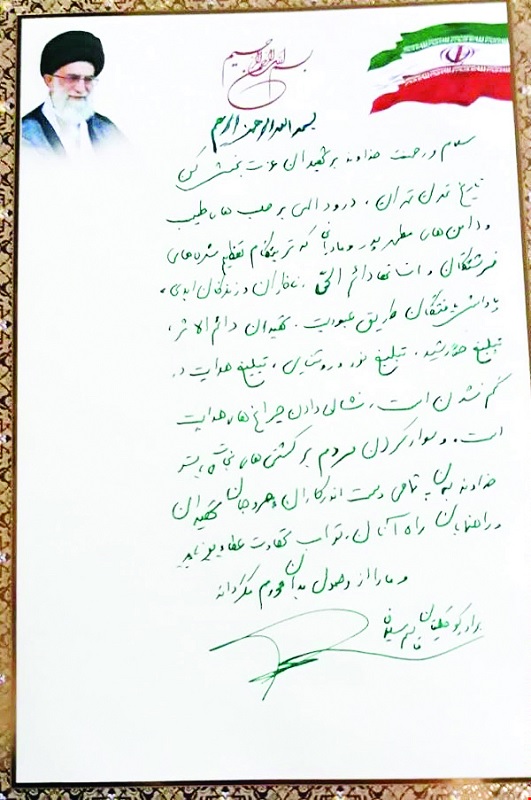 بسم الله الرحمن الرحیم
بسمه الله الرحمن الرحیم
سلام و رحمت خداوند بر شهیدان عزت بخش
تاریخ تمدن تهران، درود الهی بر صلب های طیب
و دامن های مطهر پدر و مادرانی که تربیتگاه تعظیم شده های
فرشتگان و انسانهای دائم الحق، ماندگاران و زندگان ابدی،
پاداش یافتگان طریق عبودیت. شهیدان دائم الاثر،
تبلیغ خورشید، تبلیغ نور و روشنایی، تبلیغ هدایت در
گم نشدن است. نشانی دادن چراغ های هدایت
است. و سوار کردن مردم بر کشتی های نجات بشر
خداوند به تمامی دست اندرکاران و مروجان شهیدان
و راهنمایان راه آنان، ثواب شهادت عطا فرماید
و ما را از وصول بدان محروم مگرداند
برادر کوچکتان قاسم سلیمانی